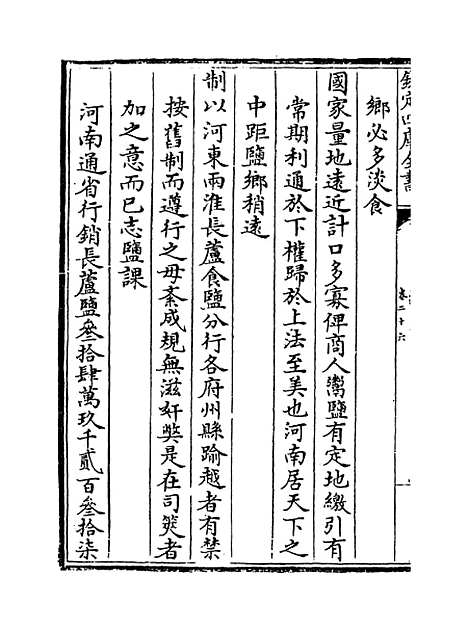 欽定四庫全書
卷二十六
鄉必多淡食
國家量地遠近計口多寡俾商人鬻鹽有定地繳引有
常期利通於下權歸於上法至美也河南居天下之
中距鹽鄉稍遠
制以河東兩淮長蘆食鹽分行各府州縣踰越者有禁
按舊制而遵行之毋紊成規無滋奸獘是在司筴者
加之意而已志鹽課
河南通省行銷長蘆鹽叄拾肆萬玖千貳百叄拾柒